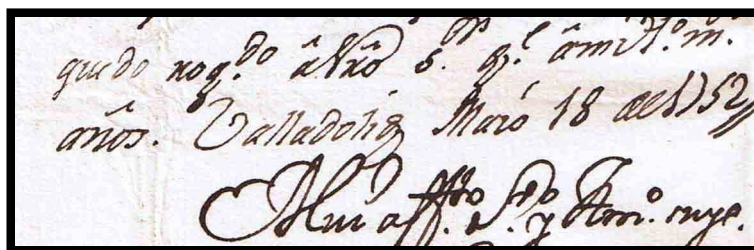 quedo rog.do â Ntrô S.r q.e â mi t.o m.s
años. Valladolid Marzo 18 de 1752
Mui aff.to S.do y Am.o suyo.